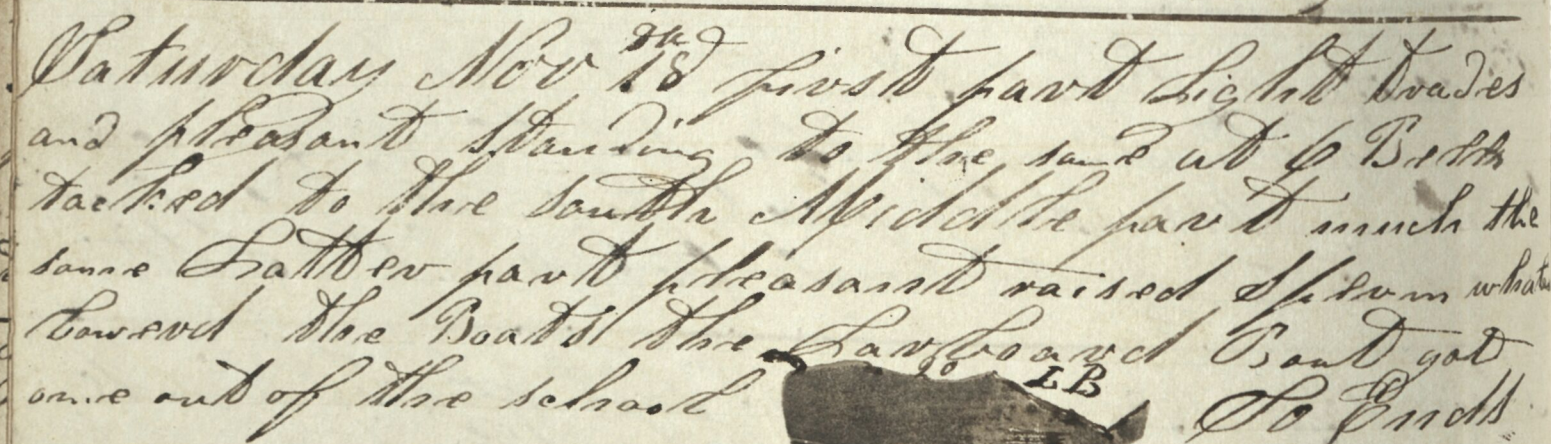 Saturday Nov 18th first part Light trades
and pleasant standing to the same at 6 Bells
tacked to the south Middle part much the
same Latter part pleasant raised Sperm
lowerd the Boats the Larboard Boat got
one out of the school LB So Ends